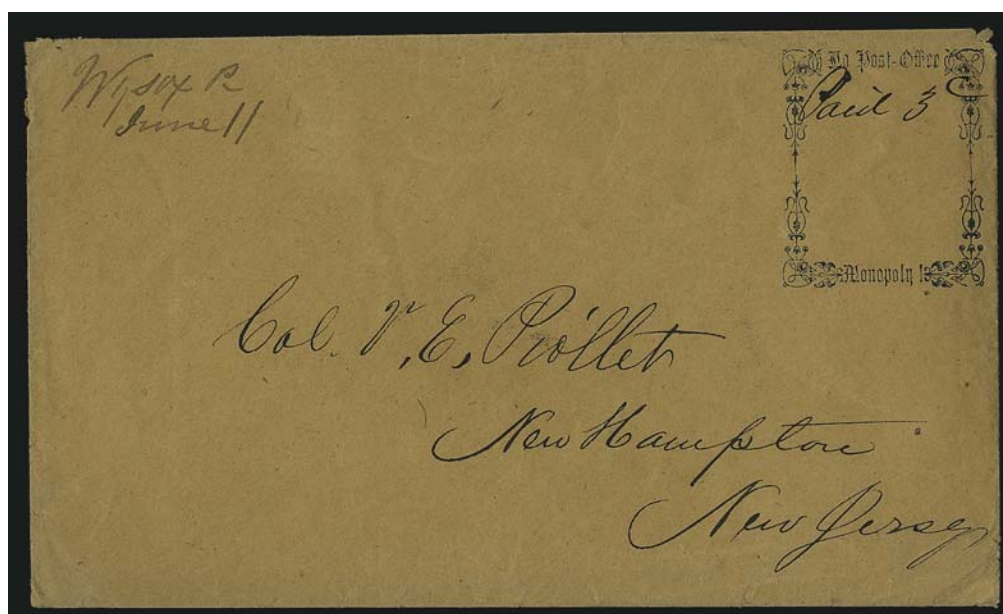 Wysox Pa
June 11
No Post-Office
Paid 3 C
Monopoly !
Col. V. E. Piollet
New Hampton
New Jersey